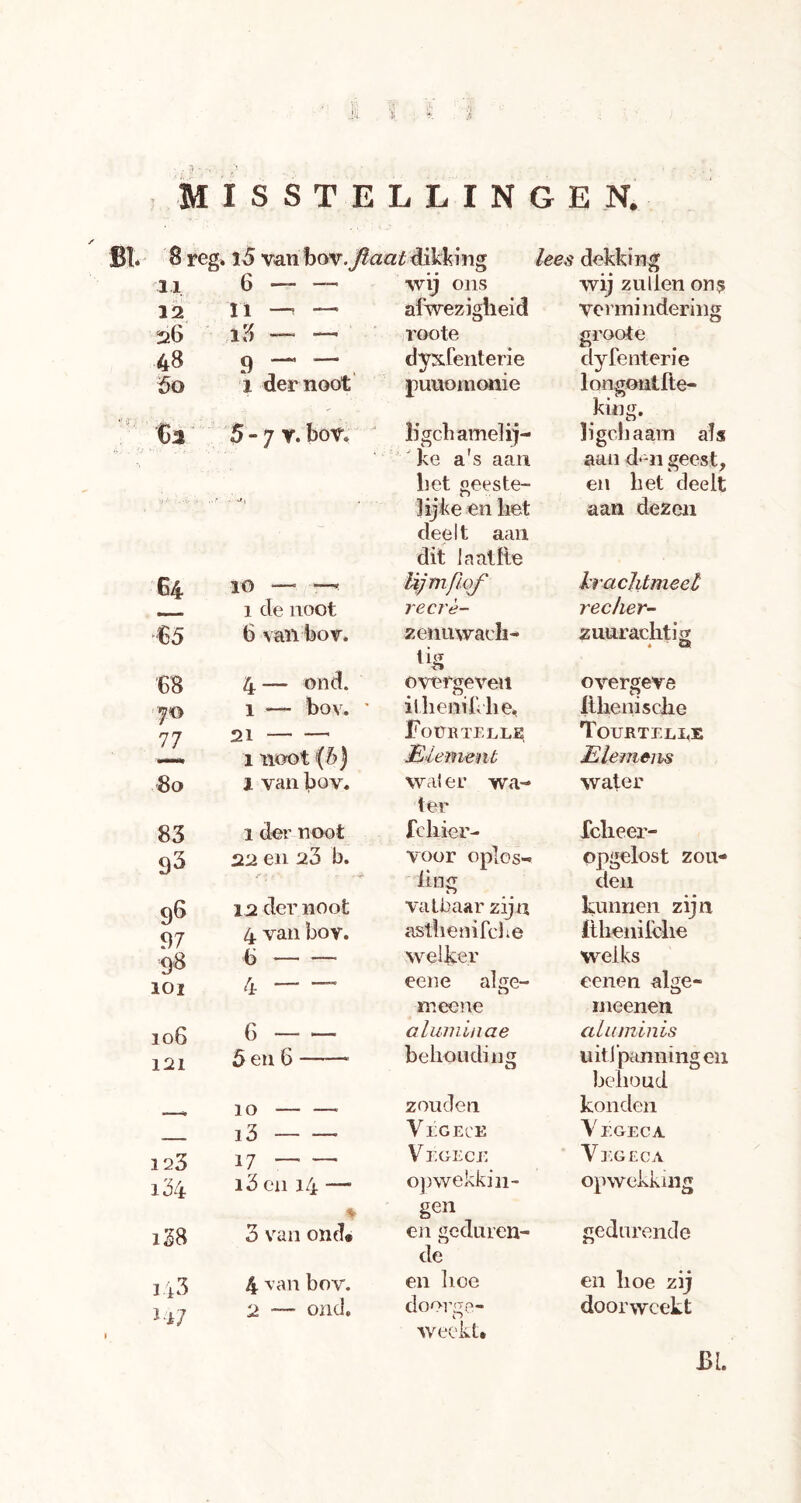 MISSTELLINGEN.
Bl. 8 reg. 15 van bov. ſtaat dikking lees dekking
11 6 — — wij ons wij zullen ons
12 11 — — afwezigheid vermindering
26 13 — — roote groote
48 9 — — dyxſenterie dyſenterie
50 1 der noot puuomonie longontſte-
king.
62 5-7 v. bov. ligchamelij- ligchaam als
ke a's aan aan den geest,
het geeste- en het deelt
lijke en het aan dezen
deelt aan
dit laatſte
64 10 — — lijmſtof krachtmeel
— 1 de noot recrè- recher-
65 6 van bov. zenuwach- zuurachtig
tig
68 4 — ond. overgeven overgeve
70 1 — bov. ithenifche, ſthenische
77 21 — — Fourtelle Tourtelle
— 1 noot (b) Element Elemens
80 1 van bov. water wa- water
ter
83 1 der noot ſchier- ſcheer-
93 22 en 23 b. voor oplos- opgelost zou-
ſing den
96 12 der noot vatbaar zijn kunnen zijn
97 4 van bov. asthenifche ſthenifche
98 6 — — welker welks
101 4 — — eene alge- eenen alge-
meene meenen
106 6 — — aluminae aluminis
121 5 en 6 — behouding uitſpanningen
behoud
— 10 — — zouden konden
— 13 — — Vegece Vegeca
123 17 — — Vegece Vegeca
134 13 en 14 — opwekkin- opwekking
gen
138 3 van ond. en geduren- gedurende
de
143 4 van bov. en hoe en hoe zij
147 2 — ond. doorge- doorweekt
weekt.
Bl.